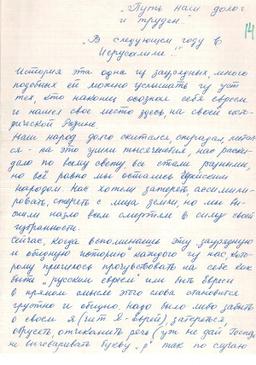 „Путь наш долог
и труден"
14
„В следующем году в
Иерусалиме!"
История эта одна из заурядных, много
подобных ей можно услышать из уст
тех, кто наконец осознал себя евреем
и нашел свое место здесь, на своей
Родине
Наш народ долго скитался, страдал,
ся - на это ушли тысячелетия, нас раски-
дало по всему свету все стали разными,
но всё равно мы остались Еврейским
народом. Нас хотели запереть, ассимили-
ровать, стереть с лица земли, но мы вы-
жили назло всем смертям в силу своей
избранности.
Сейчас, когда вспоминаешь эту заурядную
и обидную историю каждого из нас, кото-
рому пришлось прочувствовать на себе как
быть „русским евреем" или быть евреем
в прямом смысле этого слова становится
грустно и обидно. Надо было забыть
о своём Я (чит Я - еврей) затереться,
обрусеть, речь (уж не дай Господь
не выговаривать букву „р" так по случаю